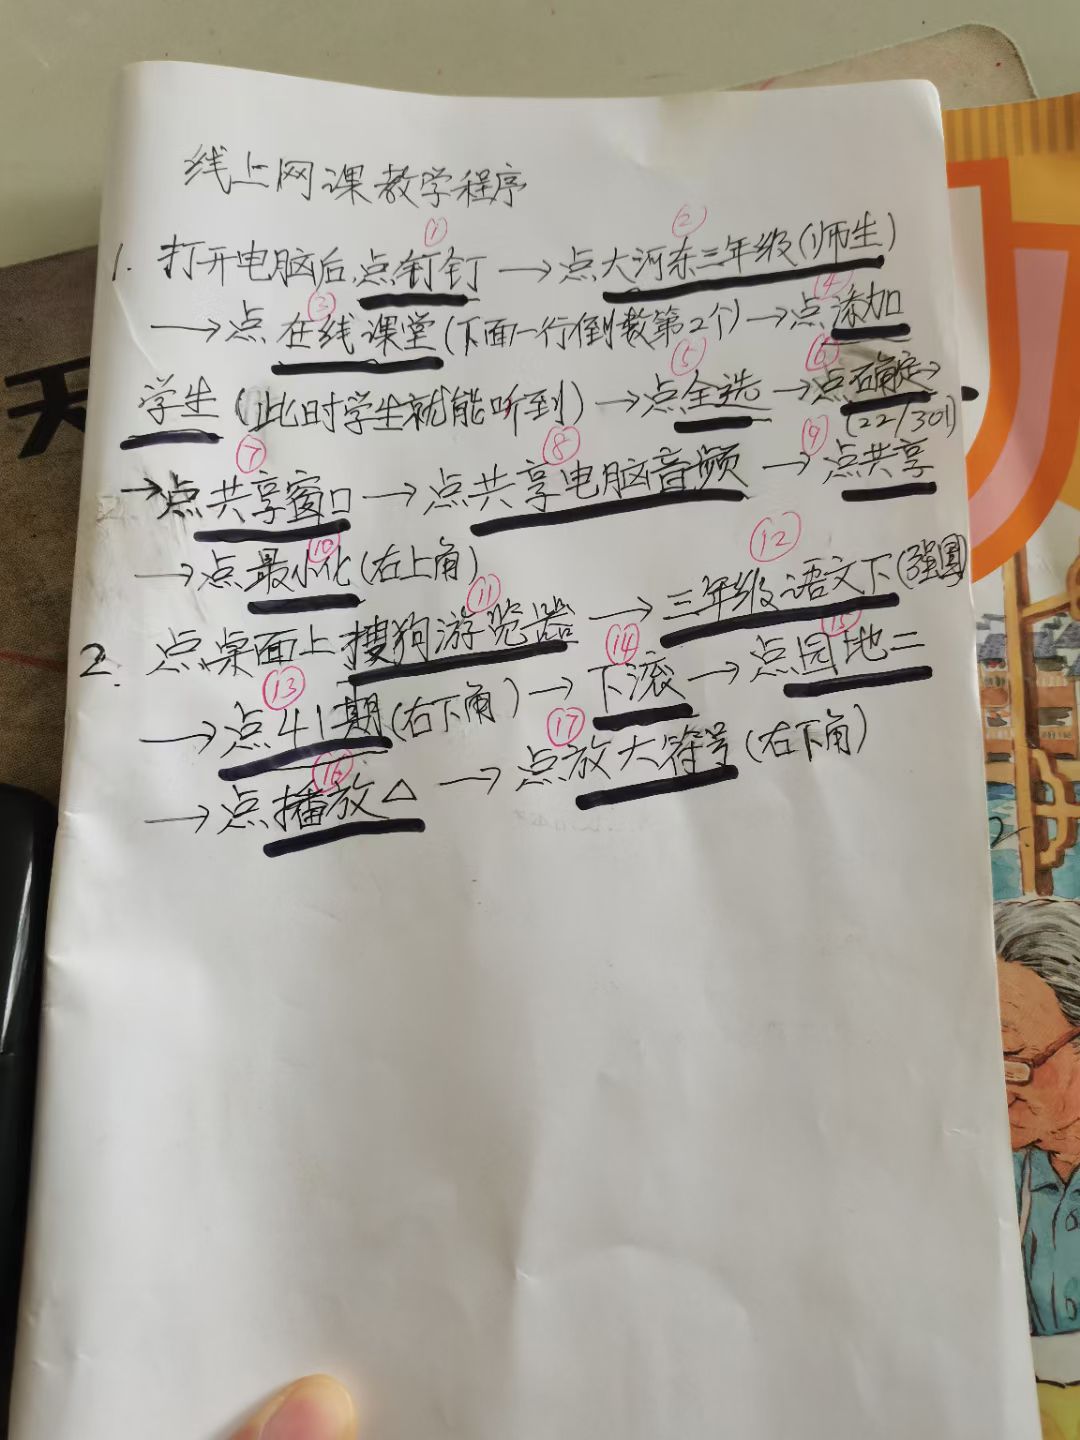 线上网课教学程序
①
②
1. 打开电脑后,点钉钉 → 点大河东三年级(师生)
③
④
→点 在线课堂(下面一行倒数第2个)→点添加
⑤
⑥
学生(此时学生就能听到)→点全选 →点确定→
(22/301)
⑦
⑧
⑨
→点共享窗口 → 点共享电脑音频 → 点共享
⑩
→点最小化(右上角)
⑪
⑫
2. 点桌面上搜狗游览器 → 三年级语文下(强国)
⑬
⑭
⑮
→点41期(右下角)→ 下滚 → 点园地二
⑯
⑰
→点播放△ → 点放大符号(右下角)
天